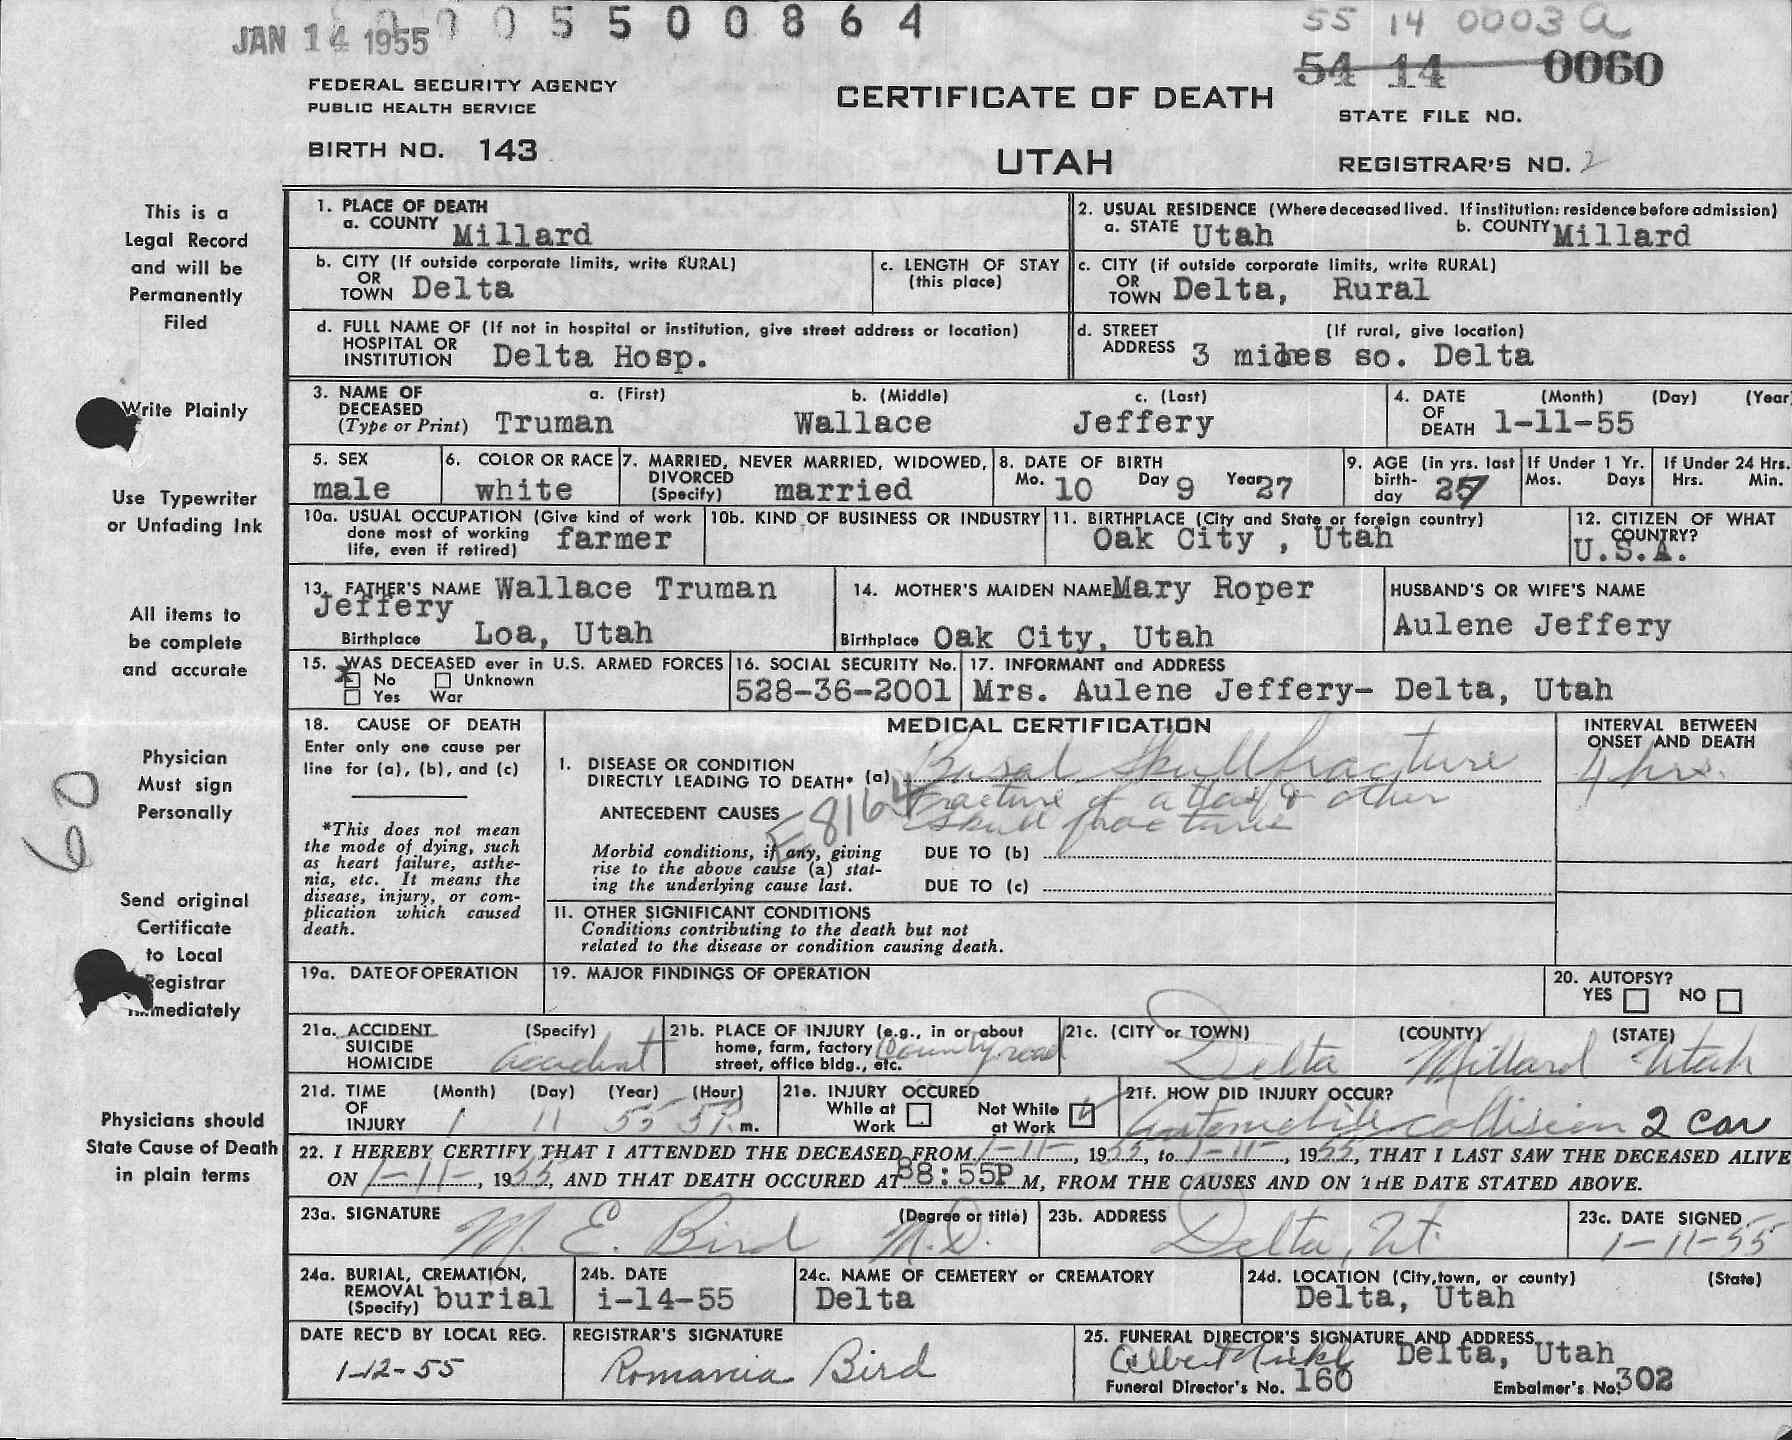 JAN 14 1955 0 0 0 5 5 0 0 8 6 4
55 14 0003 a
54 14 0060
FEDERAL SECURITY AGENCY
PUBLIC HEALTH SERVICE
BIRTH NO. 143
CERTIFICATE OF DEATH
UTAH
STATE FILE NO.
REGISTRAR'S NO. 2
This is a
Legal Record
and will be
Permanently
Filed
Write Plainly
Use Typewriter
or Unfading Ink
All items to
be complete
and accurate
Physician
Must sign
Personally
60
Send original
Certificate
to Local
Registrar
Immediately
Physicians should
State Cause of Death
in plain terms
1. PLACE OF DEATH
a. COUNTY Millard
2. USUAL RESIDENCE (Where deceased lived. If institution: residence before admission)
a. STATE Utah b. COUNTY Millard
b. CITY (If outside corporate limits, write RURAL)
OR
TOWN Delta
c. LENGTH OF STAY
(this place)
c. CITY (if outside corporate limits, write RURAL)
OR
TOWN Delta, Rural
d. FULL NAME OF (If not in hospital or institution, give street address or location)
HOSPITAL OR
INSTITUTION Delta Hosp.
d. STREET (If rural, give location)
ADDRESS 3 miles so. Delta
3. NAME OF a. (First) b. (Middle) c. (Last)
DECEASED
(Type or Print) Truman Wallace Jeffery
4. DATE (Month) (Day) (Year)
OF
DEATH 1-11-55
5. SEX
male
6. COLOR OR RACE
white
7. MARRIED, NEVER MARRIED, WIDOWED,
DIVORCED
(Specify) married
8. DATE OF BIRTH
Mo. 10 Day 9 Year 27
9. AGE (in yrs. last
birth-
day 27
If Under 1 Yr.
Mos. Days
If Under 24 Hrs.
Hrs. Min.
10a. USUAL OCCUPATION (Give kind of work
done most of working
life, even if retired) farmer
10b. KIND OF BUSINESS OR INDUSTRY
11. BIRTHPLACE (City and State or foreign country)
Oak City , Utah
12. CITIZEN OF WHAT
COUNTRY?
U.S.A.
13. FATHER'S NAME Wallace Truman
Jeffery
Birthplace Loa, Utah
14. MOTHER'S MAIDEN NAME Mary Roper
Birthplace Oak City, Utah
HUSBAND'S OR WIFE'S NAME
Aulene Jeffery
15. WAS DECEASED ever in U.S. ARMED FORCES
x No Unknown
Yes War
16. SOCIAL SECURITY No.
528-36-2001
17. INFORMANT and ADDRESS
Mrs. Aulene Jeffery- Delta, Utah
18. CAUSE OF DEATH
Enter only one cause per
line for (a), (b), and (c)
*This does not mean
the mode of dying, such
as heart failure, asthe-
nia, etc. It means the
disease, injury, or com-
plication which caused
death.
MEDICAL CERTIFICATION
INTERVAL BETWEEN
ONSET AND DEATH
I. DISEASE OR CONDITION
DIRECTLY LEADING TO DEATH* (a) Basal Skull fracture
4 hrs.
ANTECEDENT CAUSES
E8164
fracture of atlas & other
skull fractures
Morbid conditions, if any, giving
rise to the above cause (a) stat-
ing the underlying cause last.
DUE TO (b)
DUE TO (c)
II. OTHER SIGNIFICANT CONDITIONS
Conditions contributing to the death but not
related to the disease or condition causing death.
19a. DATE OF OPERATION
19. MAJOR FINDINGS OF OPERATION
20. AUTOPSY?
YES NO
21a. ACCIDENT (Specify)
SUICIDE
HOMICIDE accident
21b. PLACE OF INJURY (e.g., in or about
home, farm, factory
street, office bldg., etc. County road
21c. (CITY or TOWN) (COUNTY) (STATE)
Delta Millard Utah
21d. TIME (Month) (Day) (Year) (Hour)
OF
INJURY 1 11 55 m.
21e. INJURY OCCURED
While at Work Not While at Work
21f. HOW DID INJURY OCCUR?
Automobile collision 2 car
22. I HEREBY CERTIFY THAT I ATTENDED THE DECEASED FROM 1-11-, 1955, to 1-11-, 1955, THAT I LAST SAW THE DECEASED ALIVE
ON 1-11-, 1955, AND THAT DEATH OCCURED AT 8:55P M, FROM THE CAUSES AND ON THE DATE STATED ABOVE.
23a. SIGNATURE (Degree or title)
M. E. Bird M.D.
23b. ADDRESS
Delta, Ut.
23c. DATE SIGNED
1-11-55
24a. BURIAL, CREMATION,
REMOVAL
(Specify) burial
24b. DATE
i-14-55
24c. NAME OF CEMETERY or CREMATORY
Delta
24d. LOCATION (City, town, or county) (State)
Delta, Utah
DATE REC'D BY LOCAL REG.
1-12-55
REGISTRAR'S SIGNATURE
Romania Bird
25. FUNERAL DIRECTOR'S SIGNATURE AND ADDRESS
Albert Nickl Delta, Utah
Funeral Director's No. 160 Embalmer's No. 302